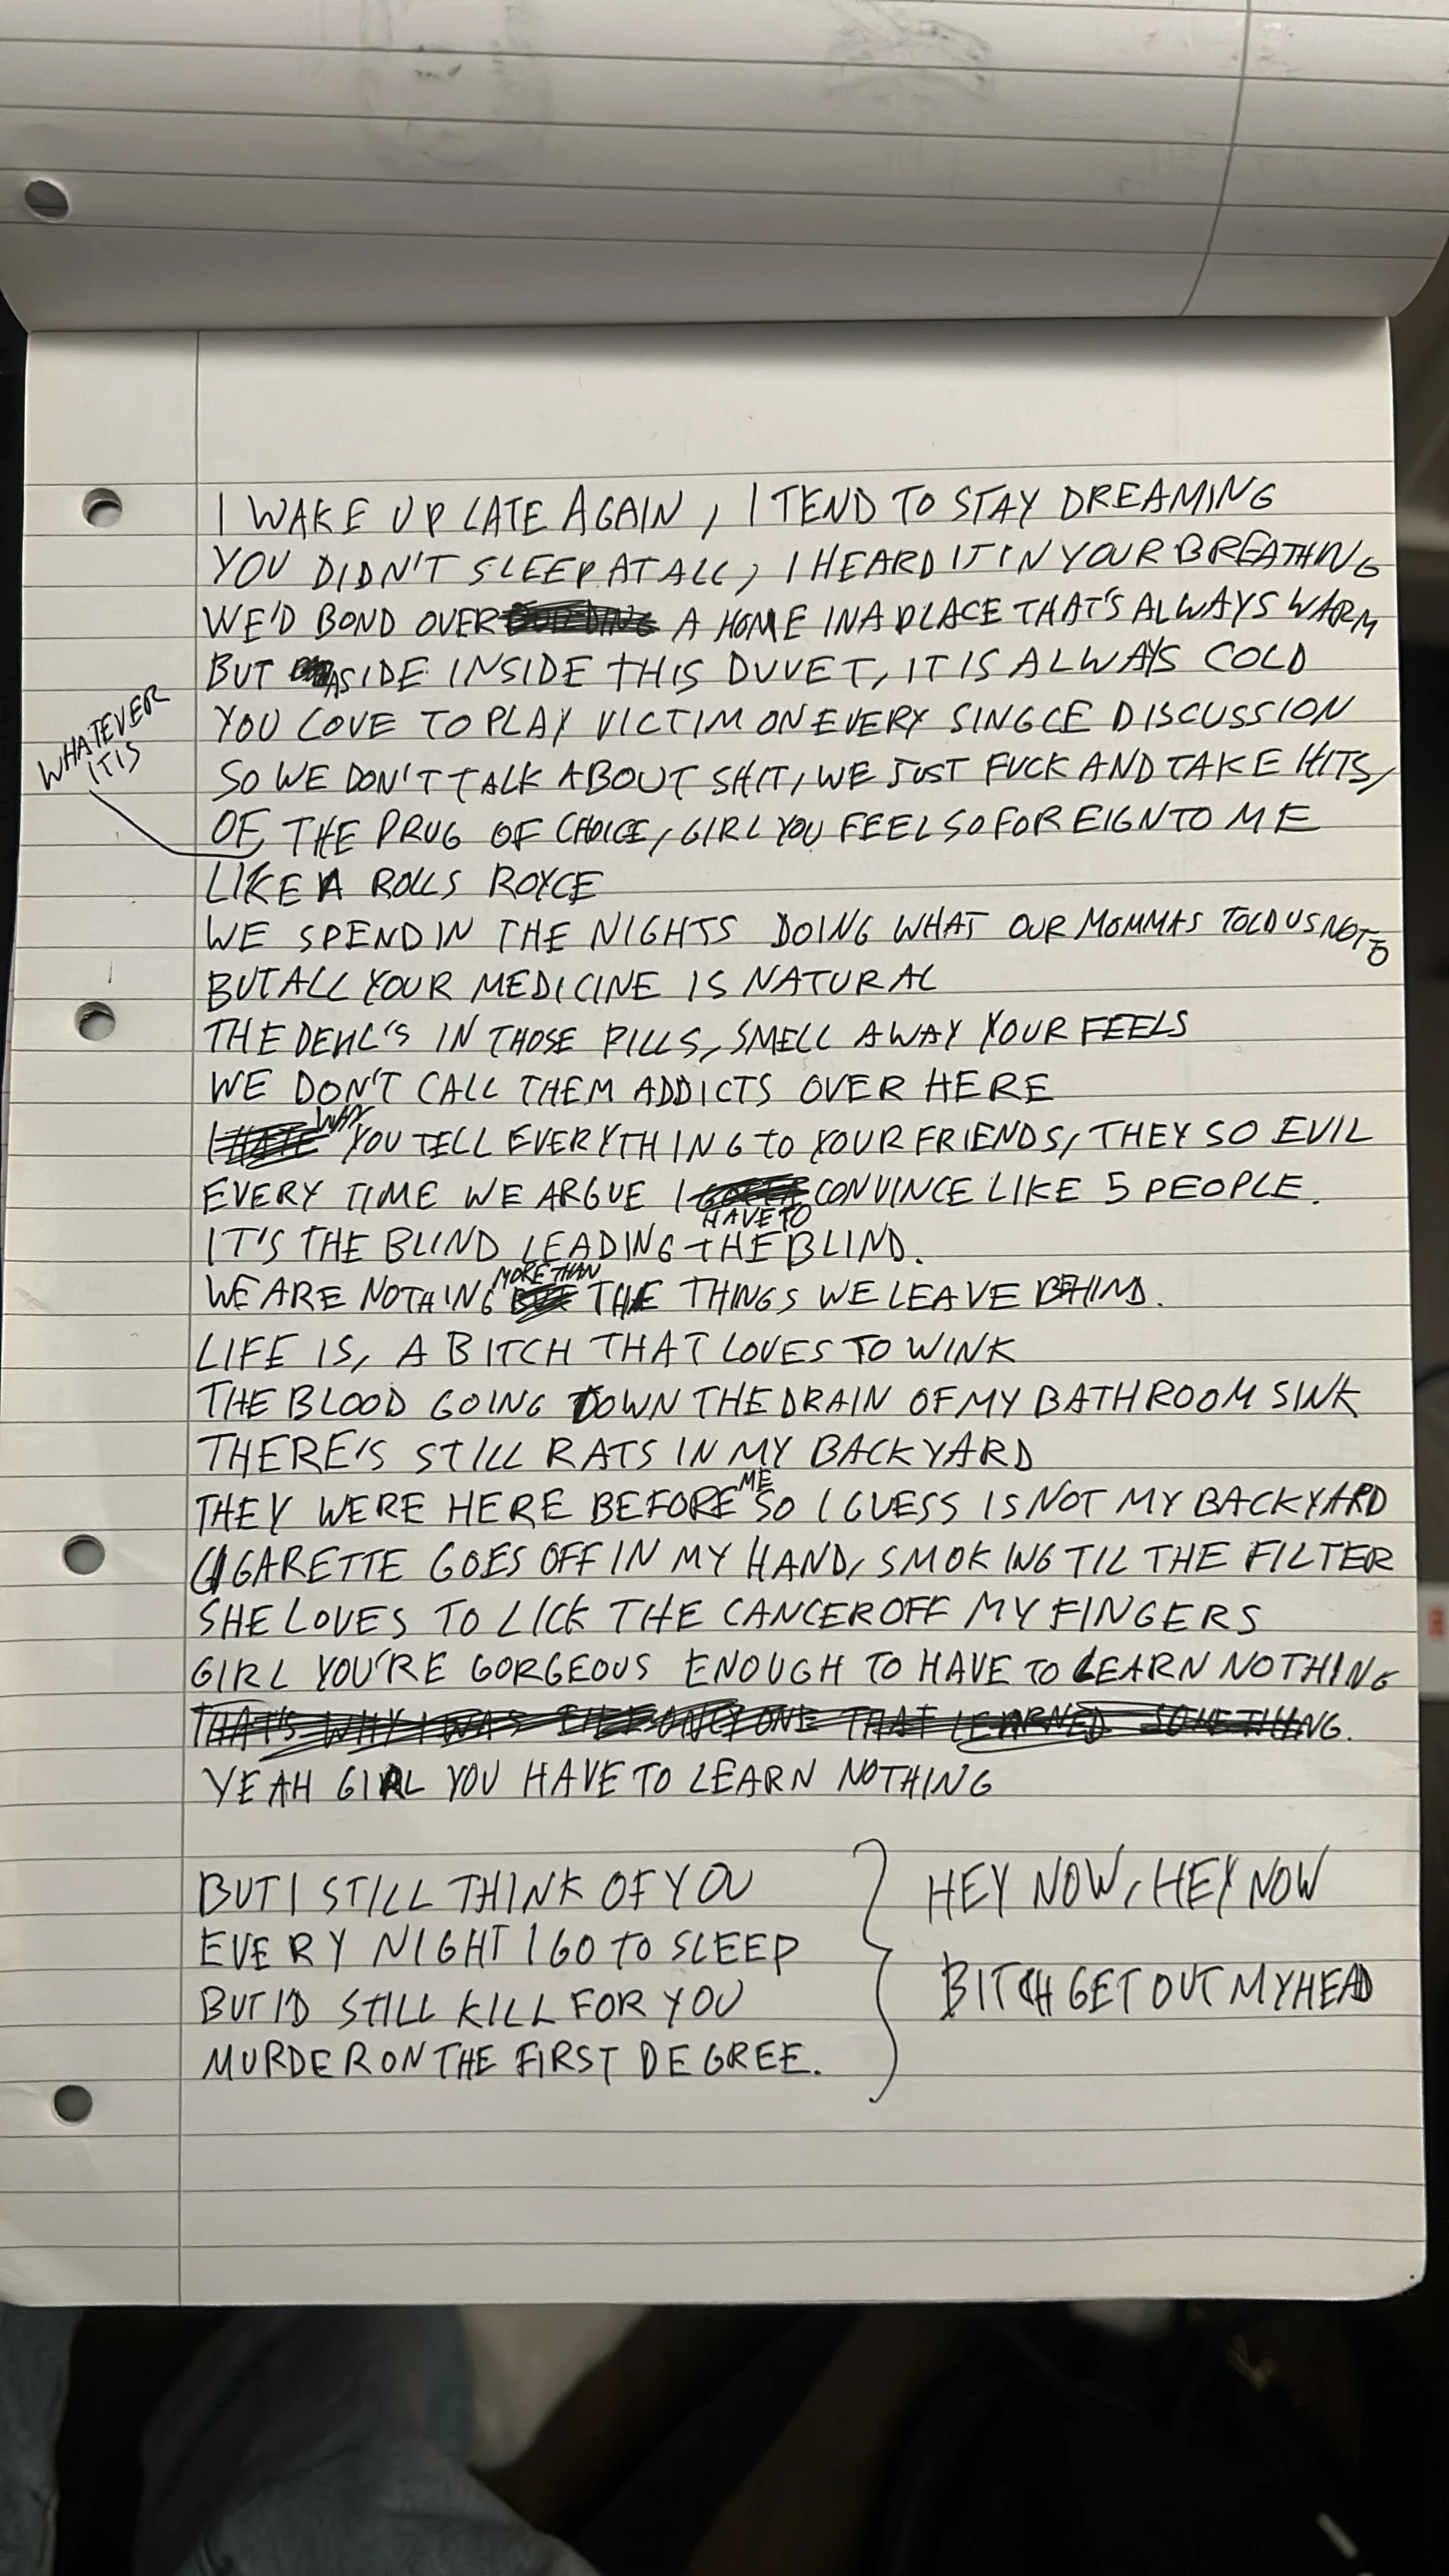 I WAKE UP LATE AGAIN, I TEND TO STAY DREAMING
YOU DIDN'T SLEEP AT ALL, I HEARD IT IN YOUR BREATHING
WE'D BOND OVER BUILDING A HOME IN A PLACE THAT'S ALWAYS WARM
BUT ASIDE INSIDE THIS DUVET, IT IS ALWAYS COLD
YOU LOVE TO PLAY VICTIM ON EVERY SINGLE DISCUSSION
WHATEVER
IT IS
SO WE DON'T TALK ABOUT SHIT, WE JUST FUCK AND TAKE HITS,
OF THE DRUG OF CHOICE, GIRL YOU FEEL SO FOREIGN TO ME
LIKE A ROLLS ROYCE
WE SPEND IN THE NIGHTS DOING WHAT OUR MOMMAS TOLD US NOT TO
BUT ALL YOUR MEDICINE IS NATURAL
THE DEVIL'S IN THOSE PILLS, SMELL AWAY YOUR FEELS
WE DON'T CALL THEM ADDICTS OVER HERE
I HATE WHY YOU TELL EVERYTHING TO YOUR FRIENDS, THEY SO EVIL
EVERY TIME WE ARGUE I GOTTA HAVE TO CONVINCE LIKE 5 PEOPLE.
IT'S THE BLIND LEADING THE BLIND.
WE ARE NOTHING BUT MORE THAN THE THINGS WE LEAVE BEHIND.
LIFE IS, A BITCH THAT LOVES TO WINK
THE BLOOD GOING DOWN THE DRAIN OF MY BATHROOM SINK
THERE'S STILL RATS IN MY BACKYARD
THEY WERE HERE BEFORE ME SO I GUESS IS NOT MY BACKYARD
CIGARETTE GOES OFF IN MY HAND, SMOKING TIL THE FILTER
SHE LOVES TO LICK THE CANCER OFF MY FINGERS
GIRL YOU'RE GORGEOUS ENOUGH TO HAVE TO LEARN NOTHING
THAT'S WHY I WAS THE ONLY ONE THAT LEARNED SOMETHING.
YEAH GIRL YOU HAVE TO LEARN NOTHING
BUT I STILL THINK OF YOU
EVERY NIGHT I GO TO SLEEP
BUT I'D STILL KILL FOR YOU
MURDER ON THE FIRST DEGREE.
HEY NOW, HEY NOW
BITCH GET OUT MY HEAD